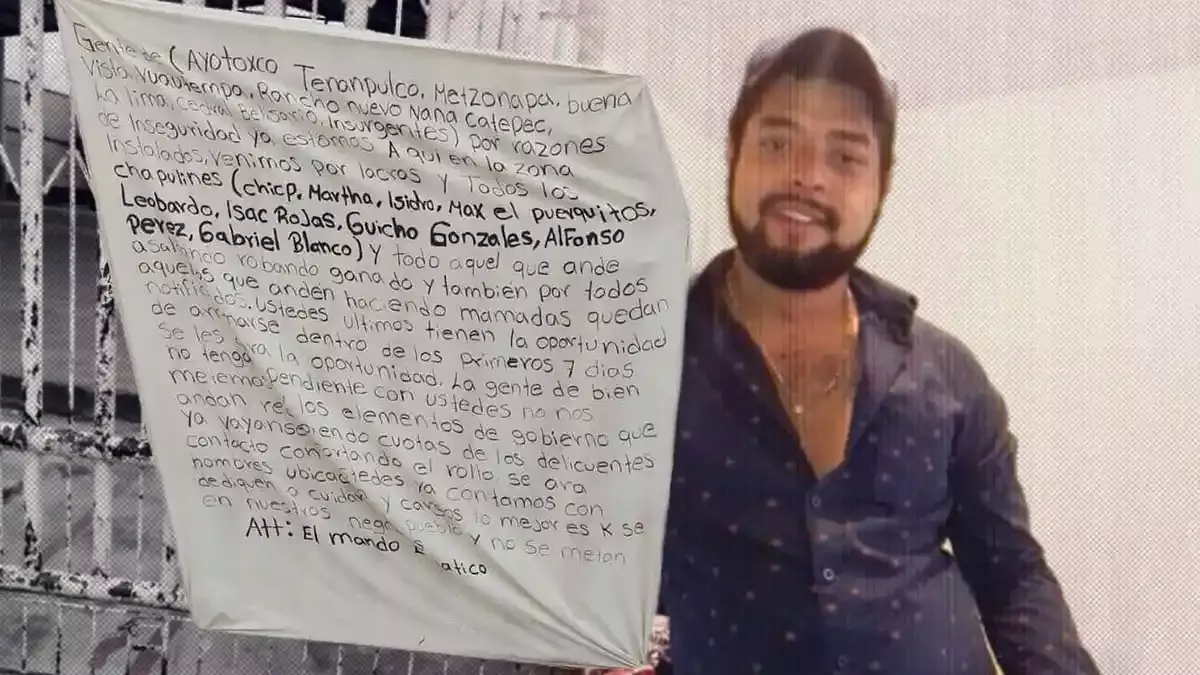 Gente de (Ayotoxco Tenanpulco, Metzonapa, buena
Vista, Yuautempa, Rancho nuevo Nana Catepec,
La lima, Cedral Belsario, Insurgentes) por razones
de Inseguridad ya estamos Aqui en la zona
Instalados, venimos por lacras y Todos los
chapulines (chicp, Martha, Isidro, Max el puerquitos,
Leobardo, Isac Rojas, Guicho Gonzales, Alfonso
Perez, Gabriel Blanco) y todo aquel que ande
asaltando robando ganado y también por todos
aquellos que anden haciendo mamadas quedan
notificados. Ustedes ultimos tienen la oportunidad
de dentro de los primeros 7 dias
se les ara la oportunidad. La gente de bien
no tenga pendiente con ustedes no nos
los elementos de gobierno que
andan cuotas de los delicuentes
ya vayanse el rollo se ara
contacto con ya contamos con
nombres y cargos lo mejor es k se
dediquen a cuidar pueblo y no se metan
en nuestros
Att: El mando